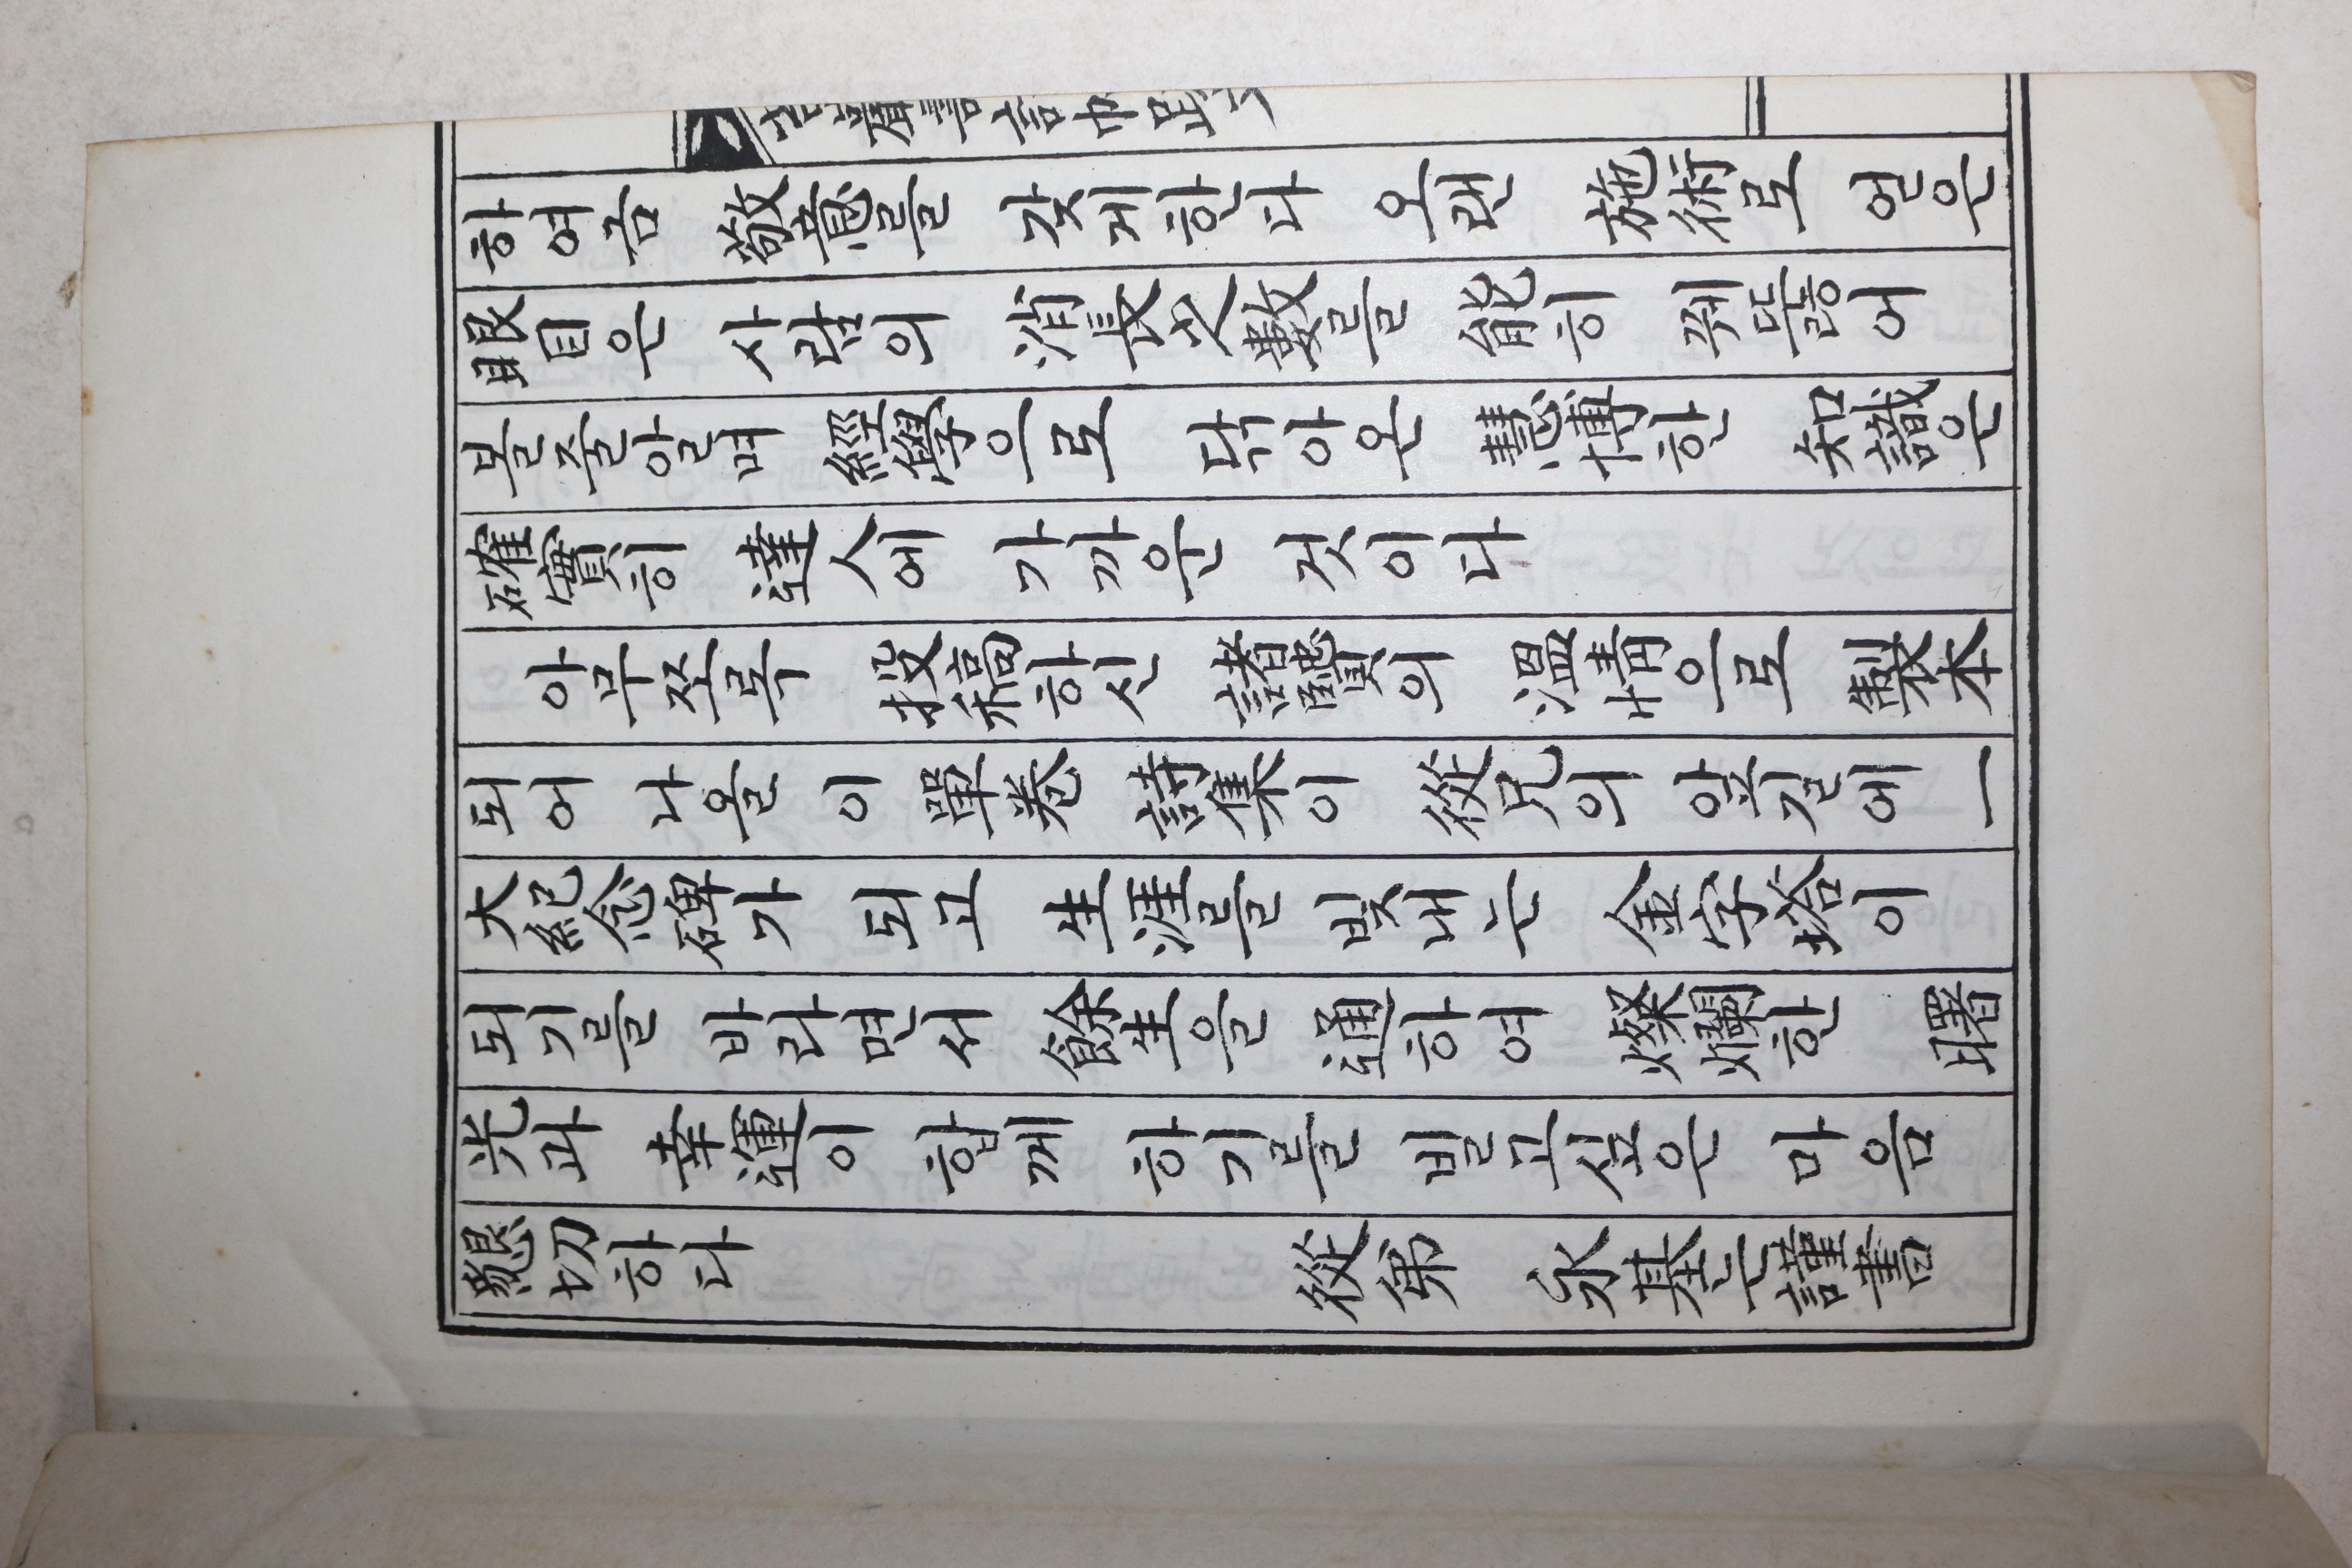 하여금 敬意를 갖게한다 오랜 施術로 얻은
眼目은 사람의 消長之數를 能히 꿰뚫어
볼줄알며 經學으로 닦아온 慧博한 知識은
確實히 達人에 가까운 것이다
아무쪼록 投稿하신 諸賢의 溫情으로 製本
되어 나올 이 單卷 詩集이 從兄의 앞길에 一
大紀念碑가 되고 生涯를 빛내는 金字塔이
되기를 바라면서 餘生을 通하여 燦爛한 曙
光과 幸運이 함께 하기를 빌고싶은 마음
懇切하다 從弟 永基는謹書